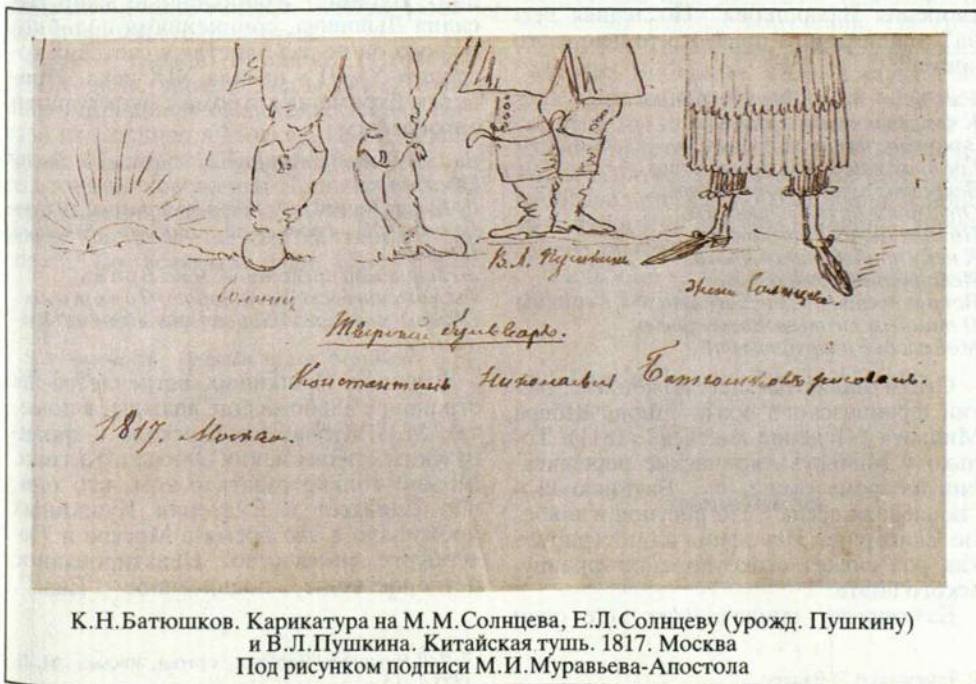 В.Л. Пушкинъ
Солнц
жена Солнцева
Тверской бульваръ.
Константинъ Николаевич Батюшковъ рисовалъ.
1817. Москва.
К.Н.Батюшков. Карикатура на М.М.Солнцева, Е.Л.Солнцеву (урожд. Пушкину)
и В.Л.Пушкина. Китайская тушь. 1817. Москва
Под рисунком подписи М.И.Муравьева-Апостола